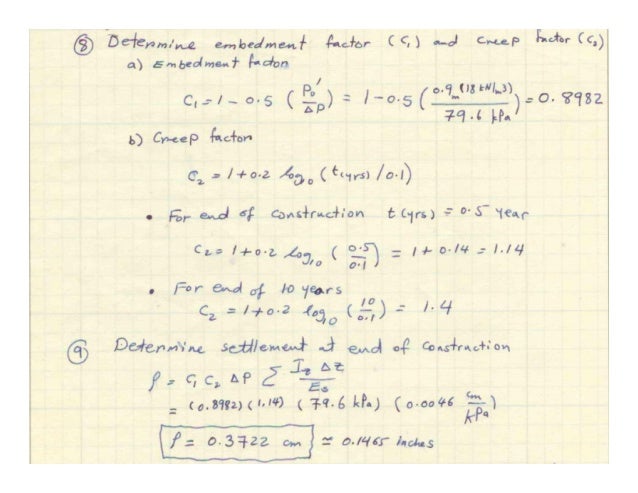 ⑧ Determine embedment factor (C₁) and creep factor (C₂)
a) Embedment factor
C₁ = 1 - 0.5 (P₀' / ΔP) = 1 - 0.5 (0.9 m (18 kN/m3) / 79.6 kPa) = 0.8982
b) Creep factor
C₂ = 1 + 0.2 log₁₀ (t(yrs) / 0.1)
• For end of construction t(yrs) = 0.5 year
C₂ = 1 + 0.2 log₁₀ (0.5 / 0.1) = 1 + 0.14 = 1.14
• For end of 10 years
C₂ = 1 + 0.2 log₁₀ (10 / 0.1) = 1.4
⑨ Determine settlement at end of construction
ρ = C₁ C₂ ΔP Σ (I_z Δz / E_s)
= (0.8982) (1.14) (79.6 kPa) (0.0046 cm / kPa)
ρ = 0.3722 cm ≃ 0.1465 inches